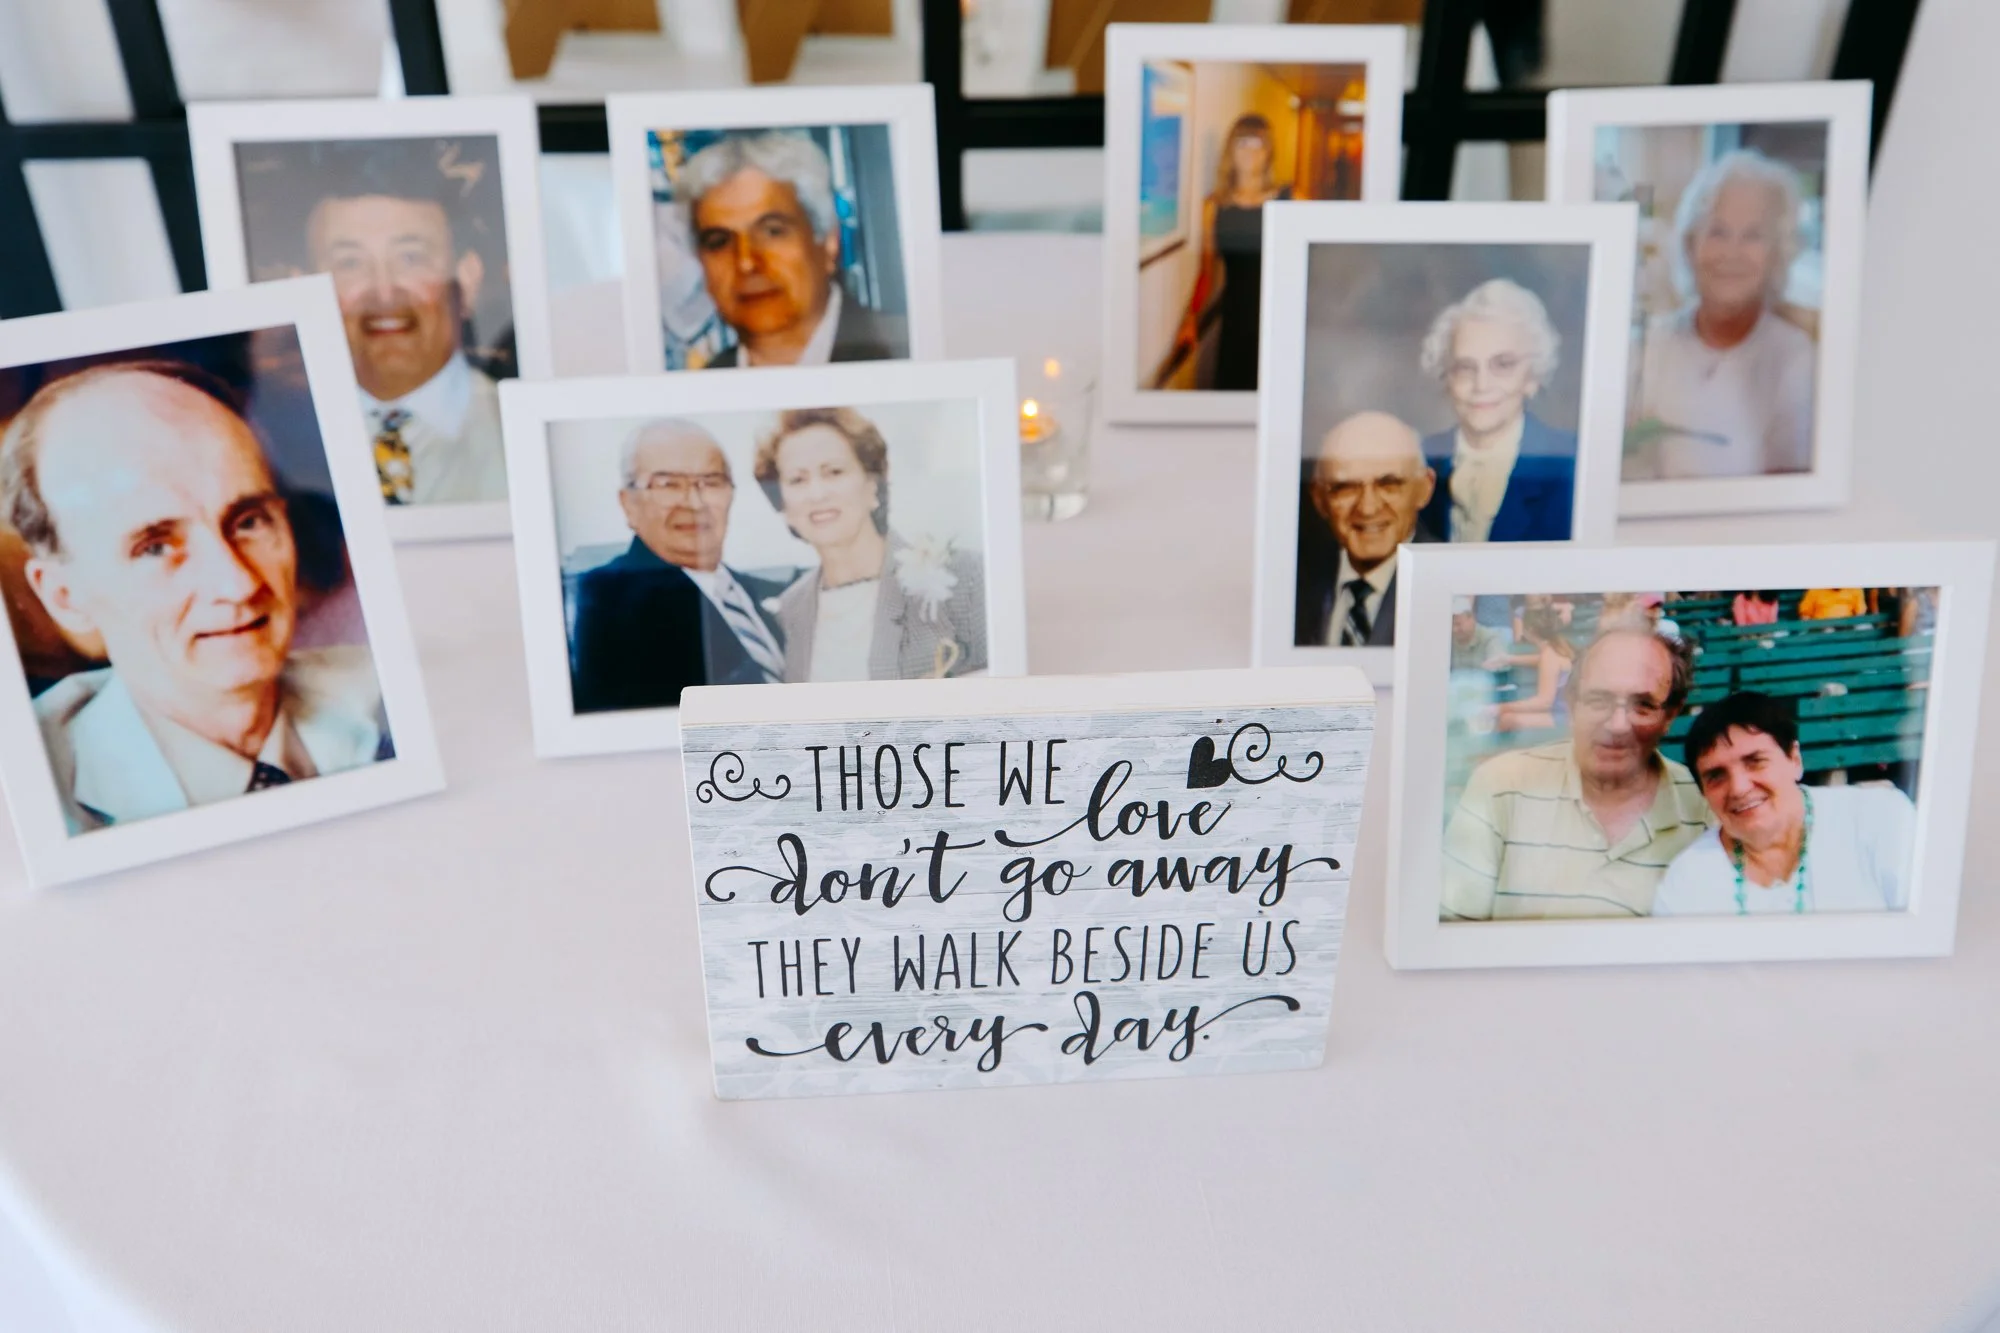 THOSE WE love
don't go away
THEY WALK BESIDE US
every day.